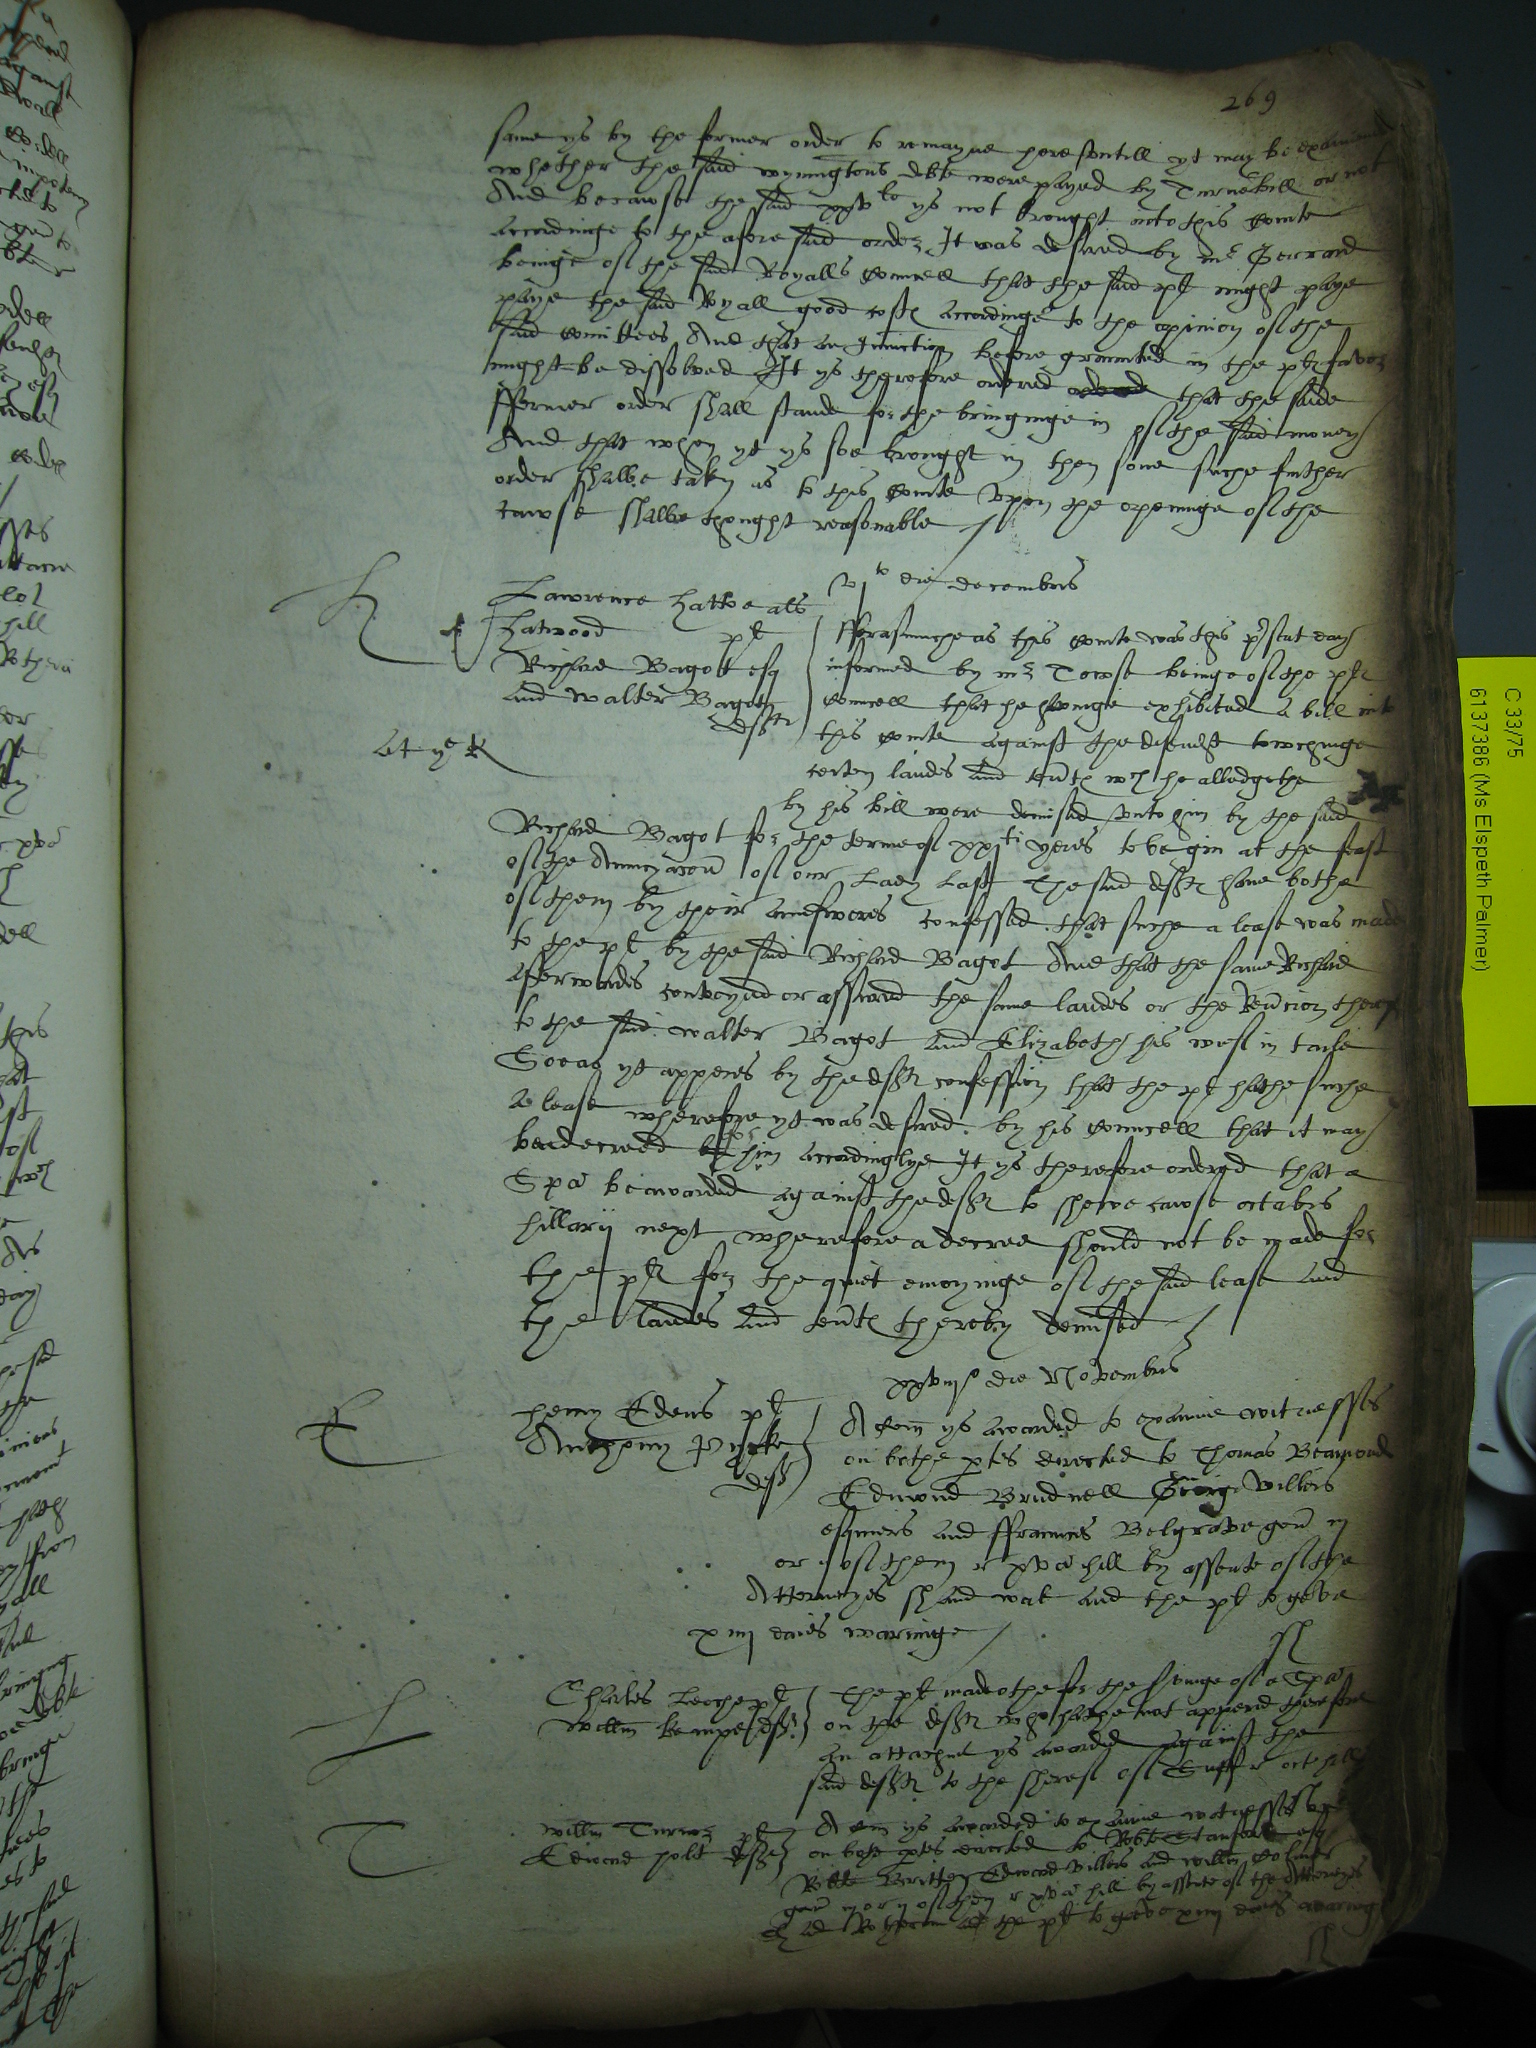 269
same ys by the former order to remayne here untill yt may be examined
whether the said wynningtons debte were payed by Turnebill or not
And becawse the said xxv li ys not brought into this Courte
accordinge to the aforesaid order It was desired by mr Gerrard
beinge of the said Ryalls Councell that the said pl might paye
the said Ryall good costs accordinge to the opinion of the
said comittees And that an Iniunction before graunted in the pl favor
might be dissolved It ys therefore ordered that the saide
fformer order shall stande for the bringinge in of the said money
And that when yt ys soe brought in then some suche further
order shalbe taken as to this Courte upon the openinge of the
cawse shalbe thought reasonable
vj to die decembris
H
Lawrence hatte als
hatwood pl
Richard Bagot esq
and walter Bagot
deftes
fforasmuche as this Courte was this present day
informed by mr Towse beinge of the pl
Councell that he havinge exhibited a bill into
this Courte against the defendts towchinge
certen landes and tents wch he alledgethe
by his bill were demised unto him by the said
Richard Bagot for the terme of xxj ti yeres to begin at the feast
of the Annunciacon of our Lady Last The said deftes have bothe
of them by their aunsweres confessed that suche a lease was made
to the pl by the said Richard Bagot And that the same Richard
afterwardes conveyed or assured the same landes or the Revercion therof
to the said walter Bagot and Elizabeth his wief in taile
Soe as yt apperes by the deftes confession that the pl hathe suche
a lease wherefore yt was desired by his Councell that it may
be decreed for him accordinglye It ys therefore ordered that a
Spa be awarded against the deftes to shewe cawse octabis
hillarij next wherefore a decree should not be made for
the pl for the quiet enioyinge of the said lease and
the landes and tents thereby demised
xxviij o die Novembris
E
henry Edens pl
Anthony
deft
A Com ys awarded to examine witnesses
on bothe ptes directed to Thomas Beamond
Edmond Brudnell George Villers
esquiers and ffrauncis Belgrave gen iij
or ij of them r xv a hill by assente of the
Attorneyes and the pl to geve
xiiij daies warninge
L
Charles Leeche pl
Willm kempe deft
The pl made othe for the servinge of a Spa
on the deft who hathe not appered therefore
an attachmt ys awarded against the
said deft to the sheref of Suff r oct hill
T
Willm Turnor pl
Edward holt deft
A Com ys awarded to examine witnesses
on bothe ptes directed to Robte Stanford esq
Britten Edward Villers and willm
gen iij or ij of them r xv a hill by assente of the Attorneyes
and the pl to geve xiiij daies warning